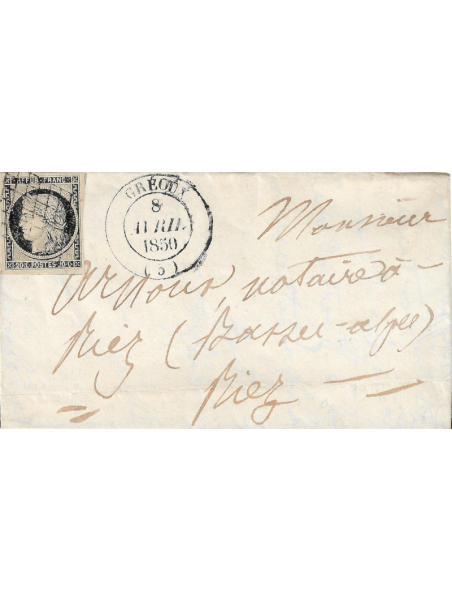 REPUB. FRANC.
20.C. POSTES. 20.C.
GRÉOUX
8
AVRIL
1850
(5)
Monsieur
Arnoux, notaire à
Riez (Basses-alpes)
Riez